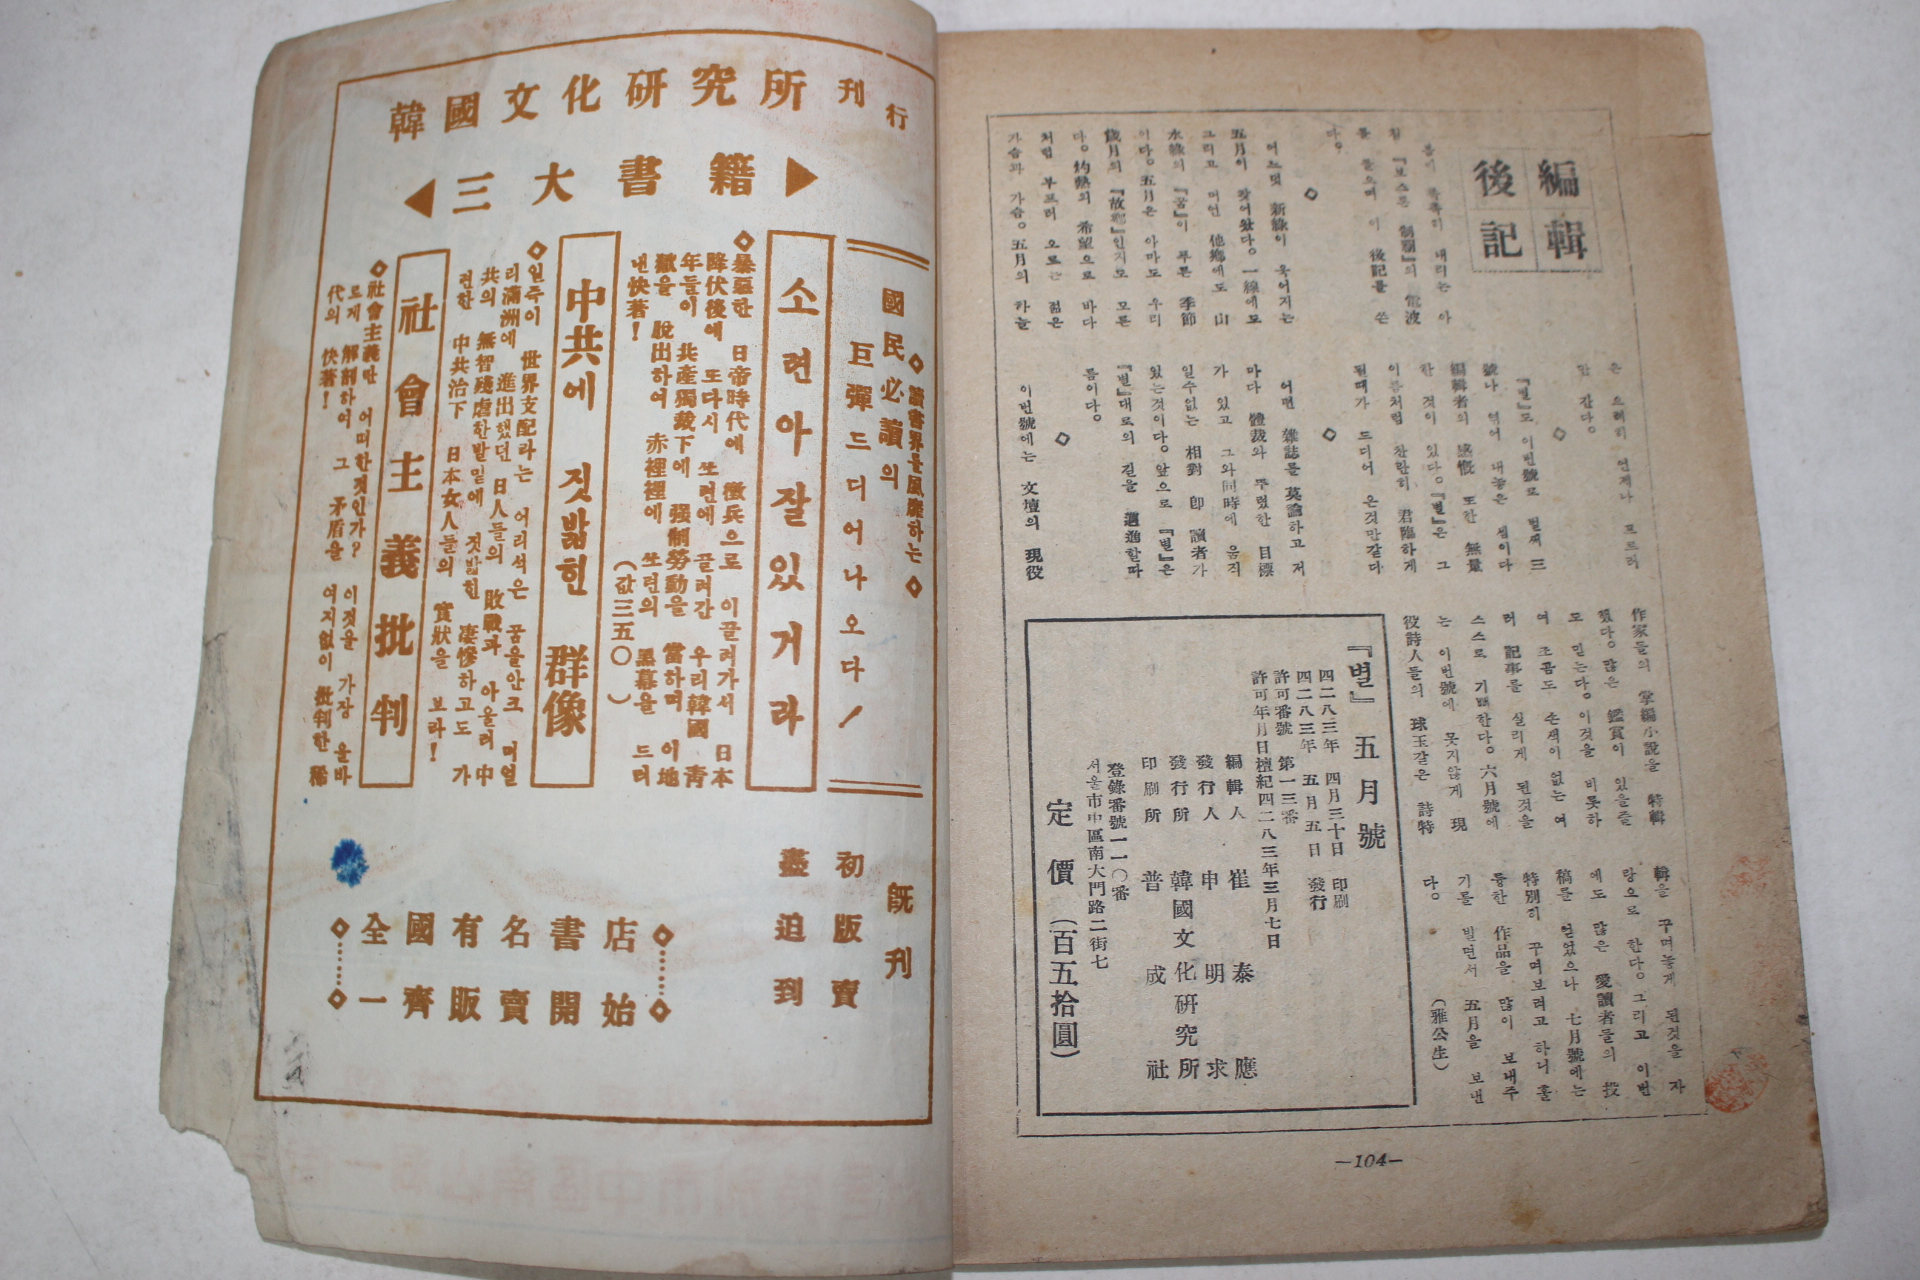 編輯
後記
물이 뚝뚝히 내리는 아
침 『보스톤 制覇』의 電波
를 들으며 이 後記를 쓴
다。
◇
어느덧 新綠이 욱어지는
五月이 왔다。一線에도
그리고 머언 他鄕에도 山
水綠의 『꿈』이 푸른 季節
이다。五月은 아마도 우리
歲月의 『故鄕』인지도 모른
다。灼熱의 希望으로 바다
처럼 부프러 오르는 젊은
가슴과 가슴。五月의 하늘
은 으레히 언제나 모르러
만 간다。
◇
『별』도 이번號로 벌써 三
號나 엮어 내놓은 셈이다
編輯者의 感慨 또한 無量
한 것이 있다。『별』은 그
이름처럼 찬란히 君臨하게
될때가 드디어 온것만같다
◇
어떤 雜誌를 莫論하고 저
마다 體裁와 뚜렸한 目標
가 있고 그와同時에 움직
일수없는 相對 卽 讀者가
있는것이다。앞으로 『별』은
『별』대로의 길을 邁進할따
름이다。
◇
이번號에는 文壇의 現役
作家들의 掌編小說을 特輯
했다。많은 鑑賞이 있을줄
도 믿는다。이것을 비롯하
여 조곰도 손색이 없는 여
러 記事를 실리게 된것을
스스로 기뻐한다。六月號에
는 이번號에 못지않게 現
役詩人들의 球玉같은 詩特
輯을 꾸며놓게 된것을 자
랑으로 한다。그리고 이번
에도 많은 愛讀者들의 投
稿를 얻었으나 七月號에는
特別히 꾸며보려고 하니 훌
륭한 作品을 많이 보내주
기를 빌면서 五月을 보낸
다。 (雅公生)
『별』 五月號
四二八三年 四月三十日 印刷
四二八三年 五月五日 發行
許可番號 第一三番
許可年月日檀紀四二八三年三月七日
編輯人 崔泰應
發行人 申明求
發行所 韓國文化硏究所
印刷所 普成社
登錄番號一一〇番
서울市中區南大門路二街七
定價 (一百五拾圓)
—104—
韓國文化研究所刊行
◀三大書籍▶
◇讀書界를風靡하는◇
國民必讀의
巨彈드디어나오다!
소련아잘있거라
◇暴惡한 日帝時代에 徵兵으로 이끌려가서 日本
降伏後에 또다시 쏘련에 끌려간 우리韓國 靑
年들이 共產獨裁下에 强制勞動을 當하며 이地
獄을 脫出하여 赤裡裡에 쏘련의 黑幕을 드러
낸快著! (값三五〇)
中共에 짓밟힌 群像
◇일즉이 世界支配라는 어리석은 꿈을안고 머얼
리滿洲에 進出했던 日人들의 敗戰과 아울러 中
共의 無智殘虐한발밑에 짓밟힌 凄慘하고도 가
련한 中共治下 日本女人들의 實狀을 보라!
社會主義批判
◇社會主義란 어떠한것인가? 이것을 가장 올바
르게 解剖하여 그 矛盾을 여지없이 批判한 稀
代의 快著!
旣刊
初版賣
盡迫到
◇……◇
全國有名書店
一齊販賣開始
◇……◇